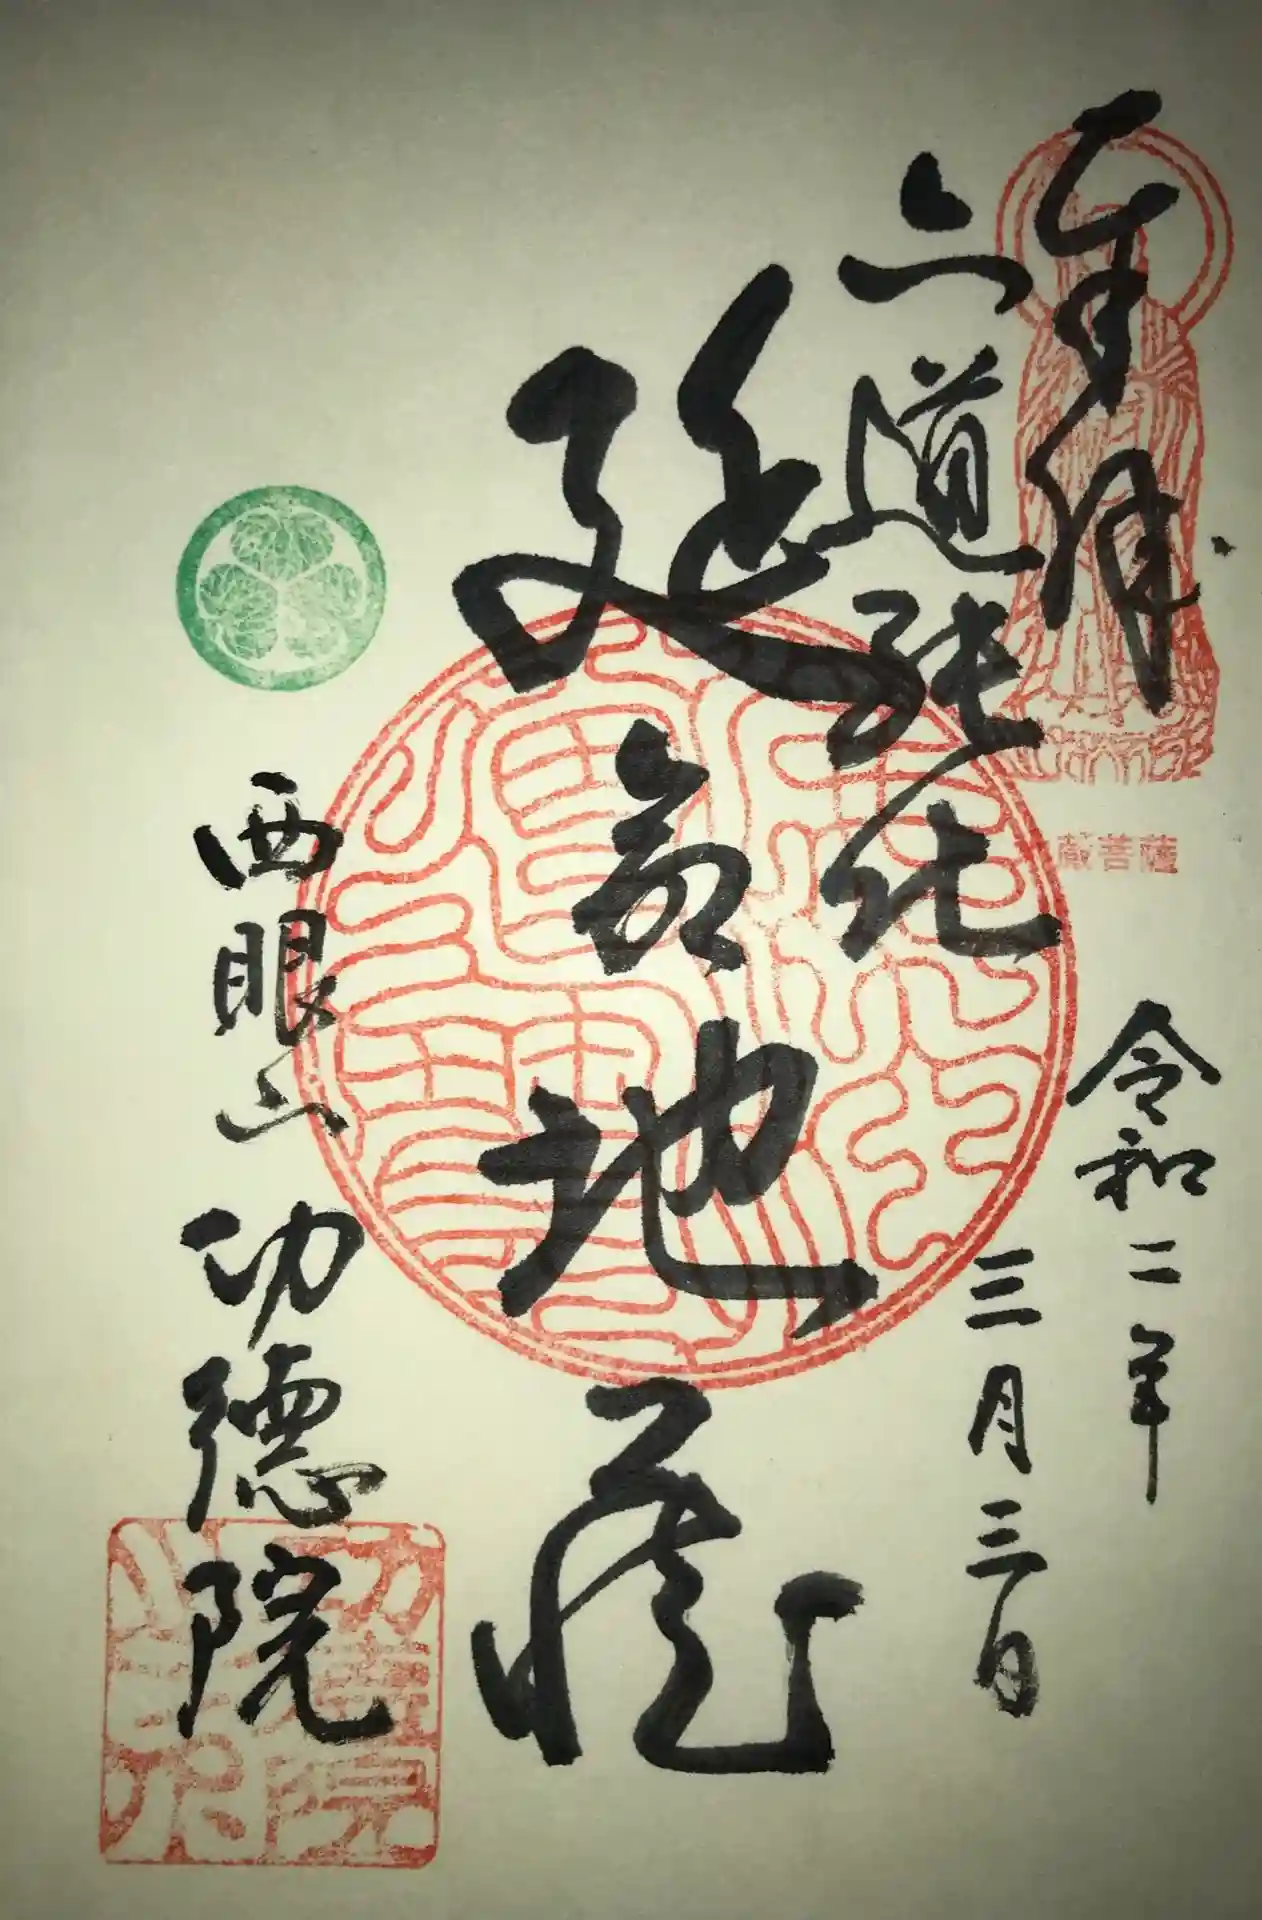 奉拝
令和二年
三月三日
六道能化
延命地蔵
西眼山 功徳院
蔵菩薩